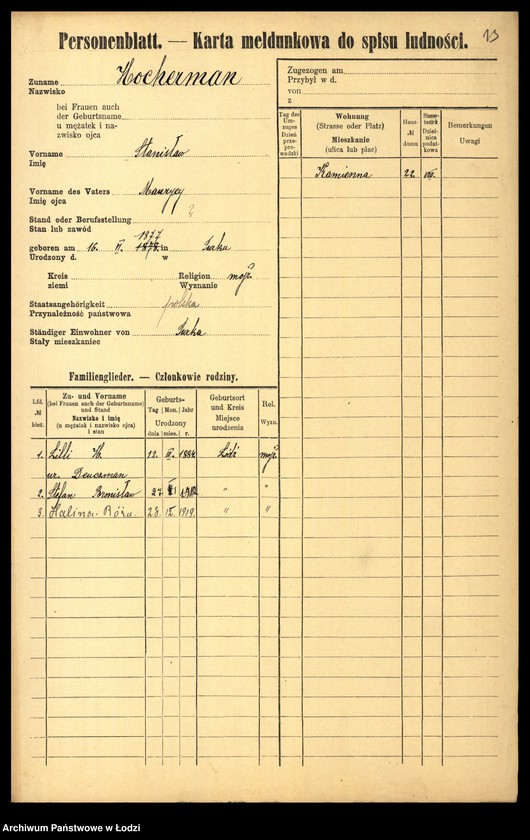 13
Personenblatt. — Karta meldunkowa do spisu ludności.
Zuname Hocherman
Nazwisko
bei Frauen auch
der Geburtsname
u mężatek i na-
zwisko ojca
Vorname Stanisław
Imię
Vorname des Vaters Maurycy
Imię ojca
Stand oder Berufsstellung
Stan lub zawód
1877
geboren am 16. II. 1878. in
Urodzony d. w
Kreis Religion mojż.
ziemi Wyznanie
Staatsangehörigkeit polska
Przynależność państwowa
Ständiger Einwohner von
Stały mieszkaniec
Zugezogen am
Przybył w d.
von
z
Tag des Um-zuges Dzień prze-prowadzki
Wohnung (Strasse oder Platz) Mieszkanie (ulica lub plac)
Haus-№ domu
Steuer-bezirk Dzielnica podat-kowa
Bemerkungen Uwagi
Kamienna 22 VII.
Familienglieder. — Członkowie rodziny.
Lfd. № bież.
Zu- und Vorname (bei Frauen auch der Geburtsname) und Stand Nazwisko i imię (u mężatek i nazwisko ojca) i stan
Geburts- Tag Mon. Jahr Urodzony dnia mies. r.
Geburtsort und Kreis Miejsce urodzenia
Rel. Wyzn.
1. Lilli H. 12. 1884 Łódź mojż.
ur.
2. Stefan Bronisław 27 " "
3. Halina-Róża 28. IX. 1919. " "
Archiwum Państwowe w Łodzi